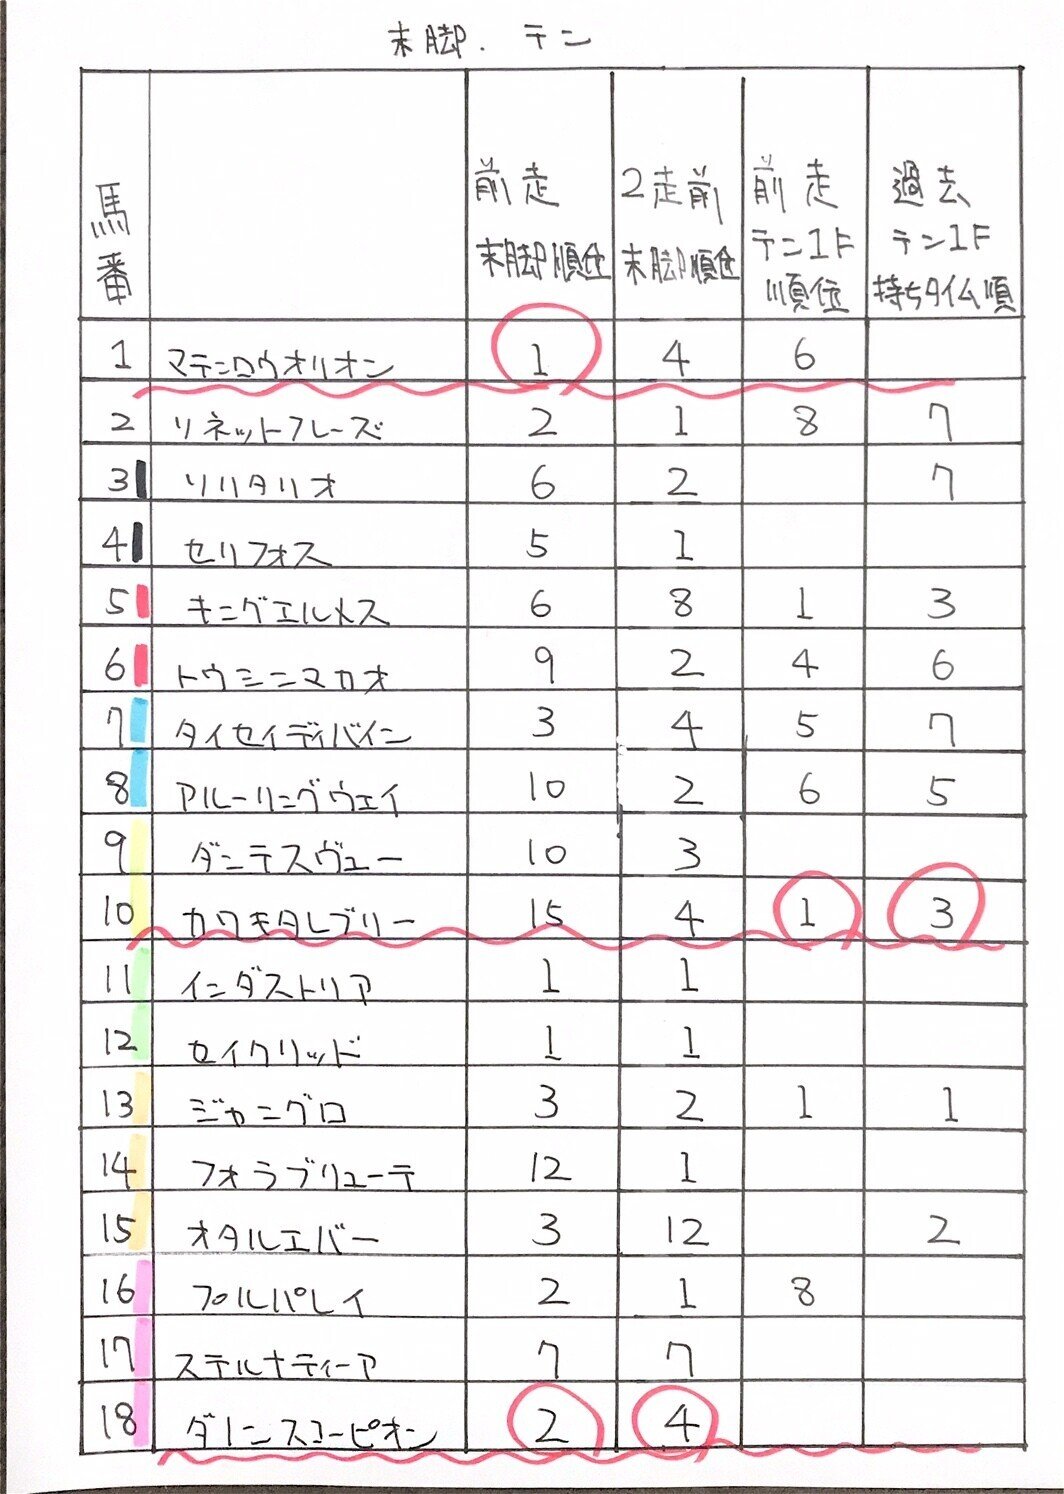 末脚. テン
馬番 前走末脚順位 2走前末脚順位 前走テン1F順位 過去テン1F持ちタイム順
1 マテンロウオリオン 1 4 6
2 リネットフレーズ 2 1 8 7
3 ソリタリオ 6 2 7
4 セリフォス 5 1
5 キングエルメス 6 8 1 3
6 トウシンマカオ 9 2 4 6
7 タイセイディバイン 3 4 5 7
8 アルーリングウェイ 10 2 6 5
9 ダンテスヴュー 10 3
10 カワキタレブリー 15 4 1 3
11 インダストリア 1 1
12 セイクリッド 1 1
13 ジャングロ 3 2 1 1
14 フォラブリューテ 12 1
15 オタルエバー 3 12 2
16 プルパレイ 2 1 8
17 ステルナティーア 7 7
18 ダノンスコーピオン 2 4